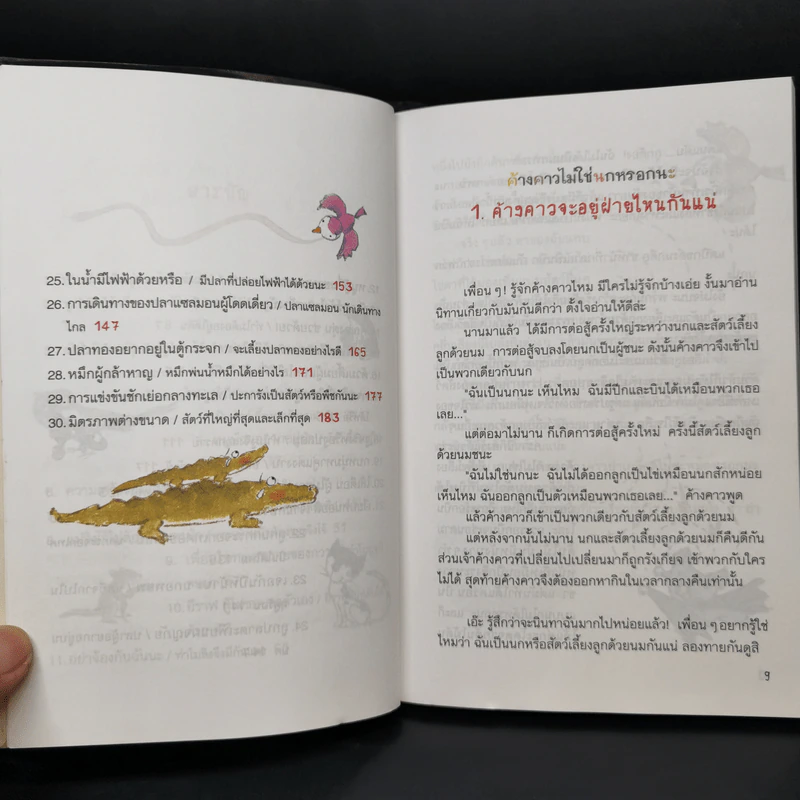 25. ในน้ำมีไฟฟ้าด้วยหรือ / มีปลาที่ปล่อยไฟฟ้าได้ด้วยนะ 153
26. การเดินทางของปลาแซลมอนผู้โดดเดี่ยว / ปลาแซลมอน นักเดินทาง
ไกล 147
27. ปลาทองอยากอยู่ในตู้กระจก / จะเลี้ยงปลาทองอย่างไรดี 165
28. หมึกผู้กล้าหาญ / หมึกพ่นน้ำหมึกได้อย่างไร 171
29. การแข่งขันชักเย่อกลางทะเล / ปะการังเป็นสัตว์หรือพืชกันนะ 177
30. มิตรภาพต่างขนาด / สัตว์ที่ใหญ่ที่สุดและเล็กที่สุด 183
ค้างคาวไม่ใช่นกหรอกนะ
1. ค้างคาวจะอยู่ฝ่ายไหนกันแน่
เพื่อนๆ! รู้จักค้างคาวไหม มีใครไม่รู้จักบ้างเอ่ย งั้นมาอ่าน
นิทานเกี่ยวกับมันกันดีกว่า ตั้งใจอ่านให้ดีล่ะ
นานมาแล้ว ได้มีการต่อสู้ครั้งใหญ่ระหว่างนกและสัตว์เลี้ยง
ลูกด้วยนม การต่อสู้จบลงโดยนกเป็นผู้ชนะ ดังนั้นค้างคาวจึงเข้าไป
เป็นพวกเดียวกับนก
"ฉันเป็นนกนะ เห็นไหม ฉันมีปีกและบินได้เหมือนพวกเธอ
เลย..."
แต่ต่อมาไม่นาน ก็เกิดการต่อสู้ครั้งใหม่ ครั้งนี้สัตว์เลี้ยงลูก
ด้วยนมชนะ
"ฉันไม่ใช่นกนะ ฉันไม่ได้ออกลูกเป็นไข่เหมือนนกสักหน่อย
เห็นไหม ฉันออกลูกเป็นตัวเหมือนพวกเธอเลย..." ค้างคาวพูด
แล้วค้างคาวก็เข้าเป็นพวกเดียวกับสัตว์เลี้ยงลูกด้วยนม
แต่หลังจากนั้นไม่นาน นกและสัตว์เลี้ยงลูกด้วยนมก็คืนดีกัน
ส่วนเจ้าค้างคาวที่เปลี่ยนไปเปลี่ยนมาก็ถูกรังเกียจ เข้าพวกกับใคร
ไม่ได้ สุดท้ายค้างคาวจึงต้องออกหากินในเวลากลางคืนเท่านั้น
เอ๊ะ รู้สึกว่าจะนินทาฉันมากไปหน่อยแล้ว! เพื่อนๆ อยากรู้ใช่
ไหมว่า ฉันเป็นนกหรือสัตว์เลี้ยงลูกด้วยนมกันแน่ ลองทายกันดูสิ
9